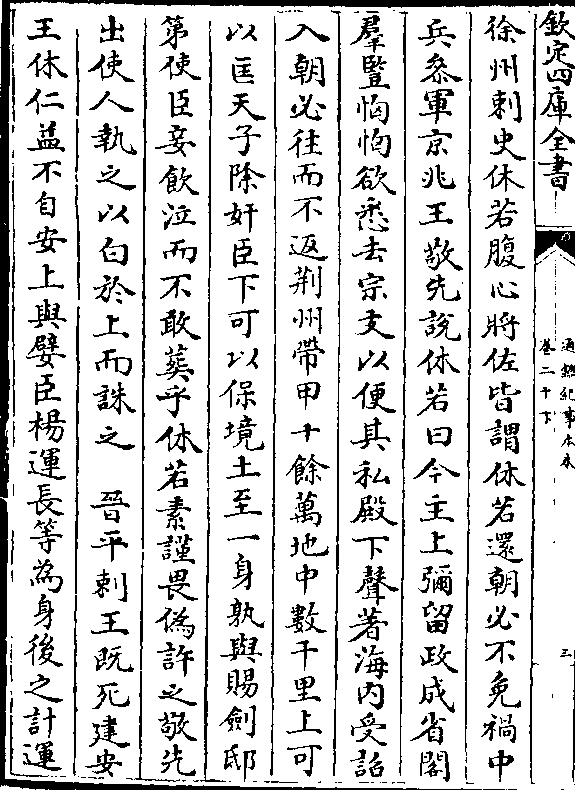 欽定四庫全書
通鑑紀事本末
卷二十下
三
徐州刺史休若腹心將佐皆謂休若還朝必不免禍中
兵叅軍京兆王敬先說休若曰今主上彌留政成省閣
羣豎恟恟欲悉去宗支以便其私殿下聲著海内受詔
入朝必徃而不返荆州帶甲十餘萬地中數千里上可
以匡天子除奸臣下可以保境土至一身孰與賜劍邸
第使臣妾飲泣而不敢葬乎休若素謹畏偽許之敬先
出使人執之以白於上而誅之 晉平剌王既死建安
王休仁益不自安上與嬖臣楊運長等為身後之計運